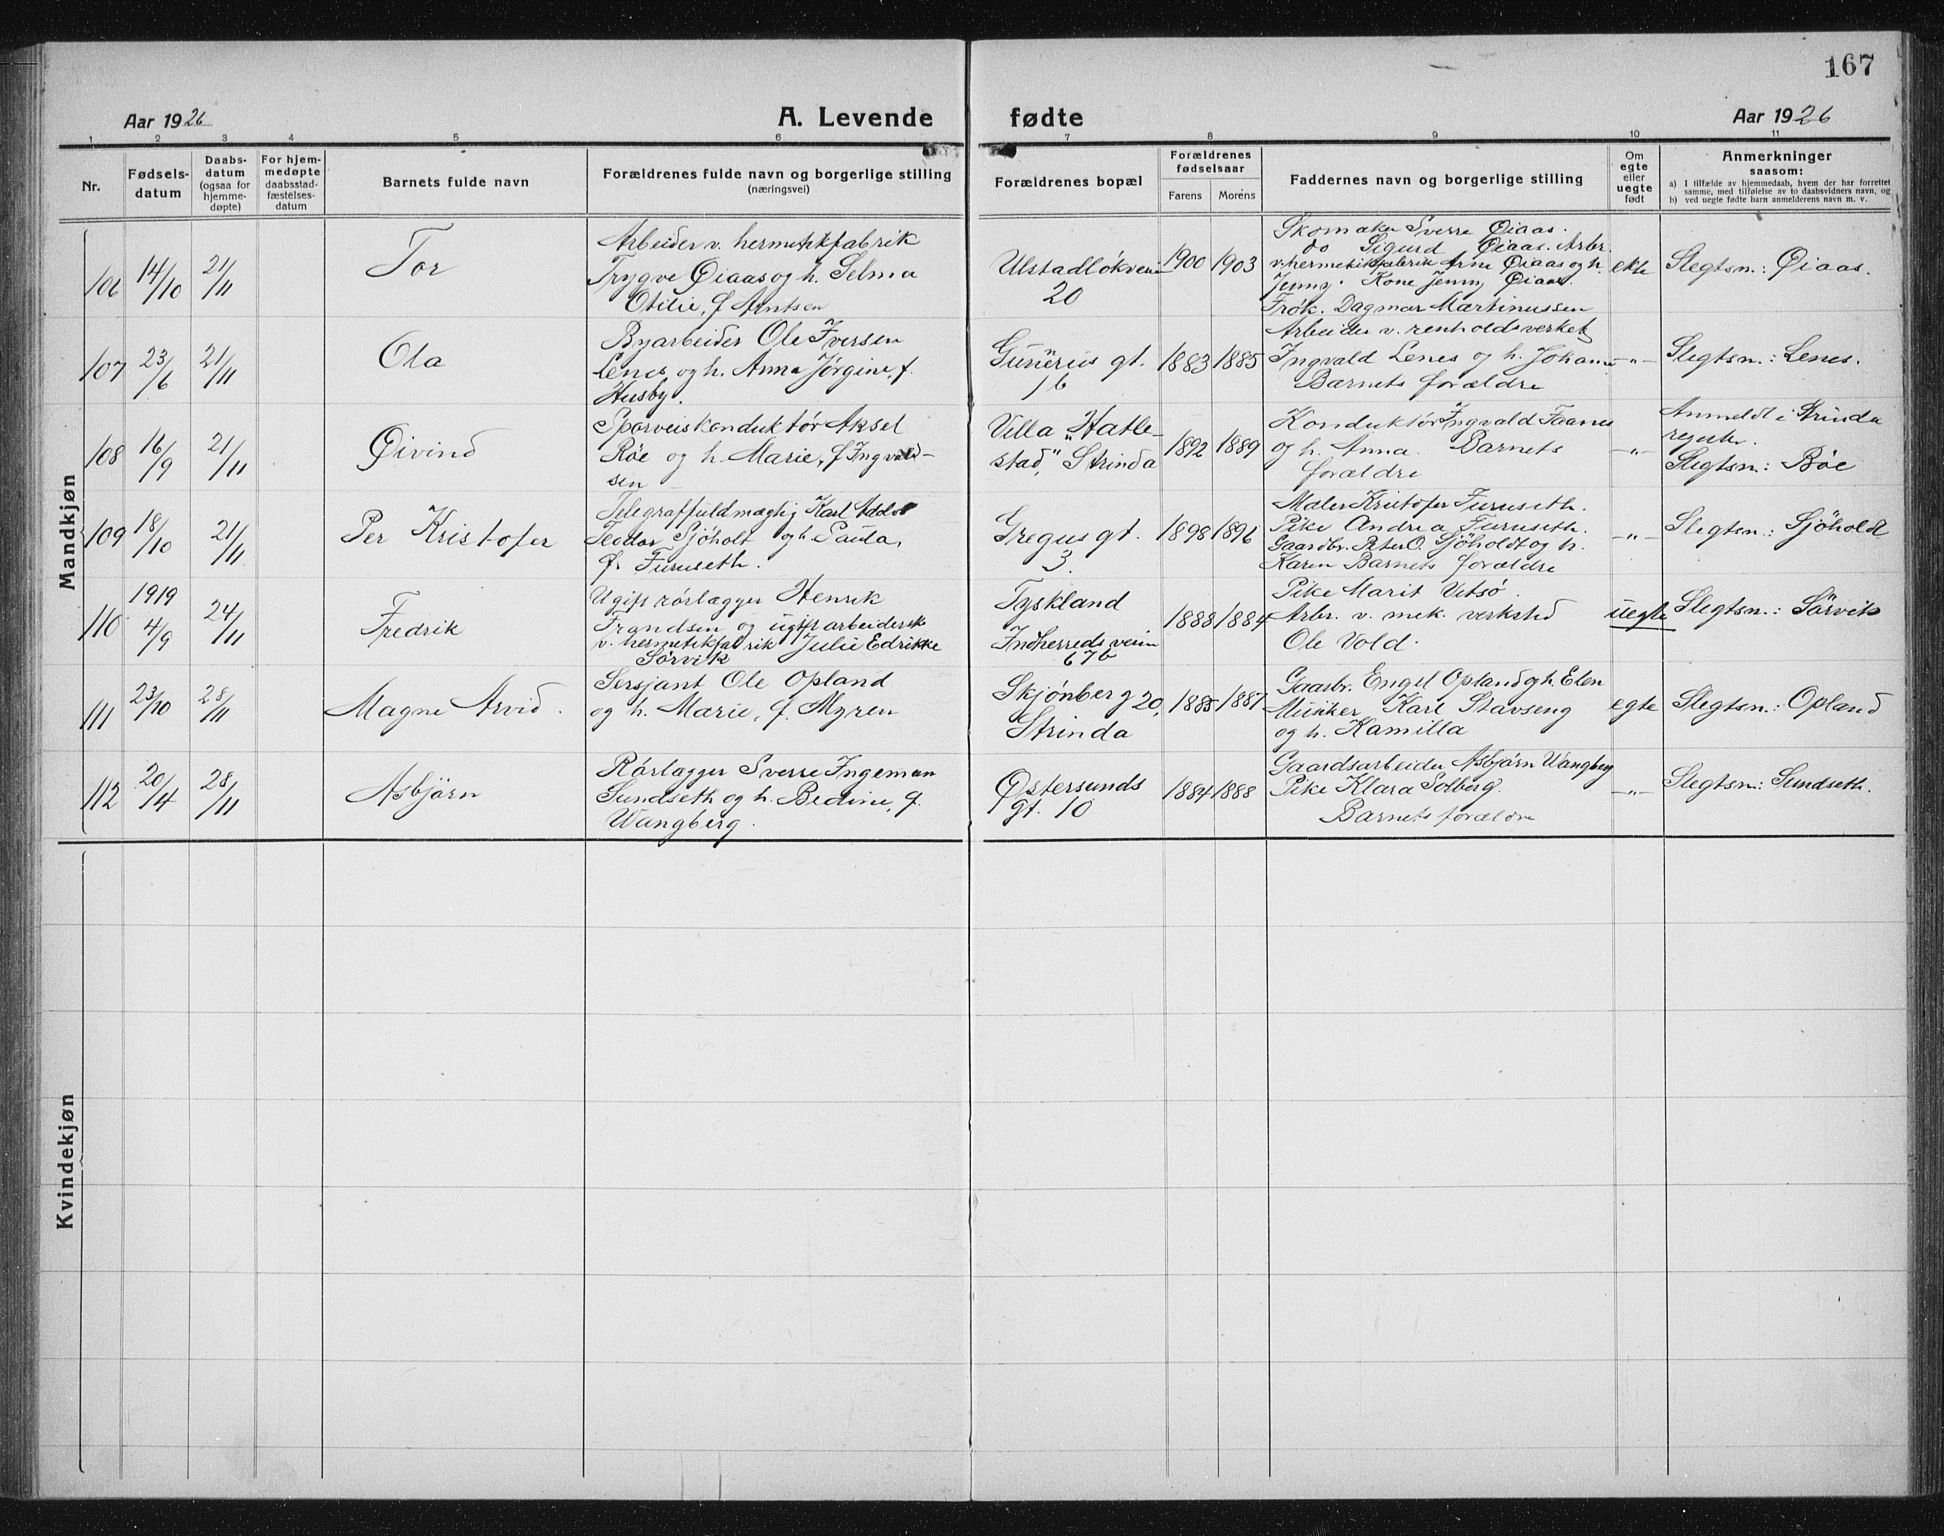 167
Aar 1926
A. Levende fødte
Aar 1926
1 2 3 4 5 6 7 8 9 10 11
Nr.
Fødsels-
datum
Daabs-
datum
(ogsaa for
hjemme-
døpte)
For hjem-
medøpte
daabsstad-
fæstelses-
datum
Barnets fulde navn
Forældrenes fulde navn og borgerlige stilling
(næringsvei)
Forældrenes bopæl
Forældrenes
fødselsaar
Farens Morens
Faddernes navn og borgerlige stilling
Om
egte
eller
uegte
født
Anmerkninger
saasom:
a) I tilfælde av hjemmedaab, hvem der har forrettet
samme, med tilføielse av to daabsvidners navn, og
b) ved uegte fødte barn anmelderens navn m. v.
Mandkjøn
106 14/10 21/11 Tor
Arbeider v. hermetikfabrik
Trygve Øiaas og h. Selma
Otilie, f. Arntsen
Ulstadløkveien
20
1900 1903
Skomaker Sverre Øiaas.
do Sigurd Øiaas. Arbr.
v. hermetikfabrik Arne Øiaas og h.
Jenny. Kone Jenny Øiaas.
Frøk. Dagmar Martinussen
ekte
Slegtsn.: Øiaas.
107 23/6 21/11 Ola
Byarbeider Ole Iversen
Lenes og h. Anna Jørgine, f.
Husby.
Gunerius gt.
1b
1883 1885
Arbeider v. renholdsverket
Ingvald Lenes og h. Johanne
Barnets forældre
-"-
Slegtsn.: Lenes.
108 16/9 21/11 Øivind
Sporveiskonduktør Aksel
Røe og h. Marie, f. Ingvald-
sen
Villa "Hatle-
stad," Strinda
1892 1889
Konduktør Ingvald Faanes
og h. Anna. Barnets
forældre
-"-
Anmeldt i Strinda
register.
Slegtsn.: Bøe
109 18/10 21/11 Per Kristofer
Telegraffuldmægtig Karl Addol
Teodor Sjöholt og h. Paula,
f. Furuseth.
Gregus gt.
3.
1898 1896
Maler Kristofer Furuseth.
Pike Andrea Furuseth.
Gaardbr. Peter O. Sjöholdt og h.
Karen Barnets forældre
-"-
Slegtsn.: Sjöholdt
110 1919 4/9 24/11 Fredrik
Ugift rörlægger Henrik
Frandsen og ugift arbeiderske
v. hermetikfabrik Julie Edrikke
Sörvik
Tyskland
Indherredsveien
67b
1888 1884
Pike Marit Vetsø.
Arbr. v. mek. verksted
Ole Vold.
uegte
Slegtsn.: Sørvik
111 23/10 28/11 Magne Arvid.
Sersjant Ole Opland
og h. Marie, f. Myren
Skjönberg 20,
Strinda
1885 1887
Gaarbr. Engel Opland og h. Elen
Musiker Karl Stavseng
og h. Kamilla
egte
Slegtsn.: Opland
112 20/4 28/11 Asbjörn
Rörlægger Sverre Ingeman
Sundseth og h. Bedine, f.
Wangberg.
Østersunds
gt. 10
1884 1888
Gaardsarbeider Asbjörn Wangberg
Pike Klara Solberg.
Barnets forældre
-"-
Slegtsn.: Sundseth.
Kvindekjøn